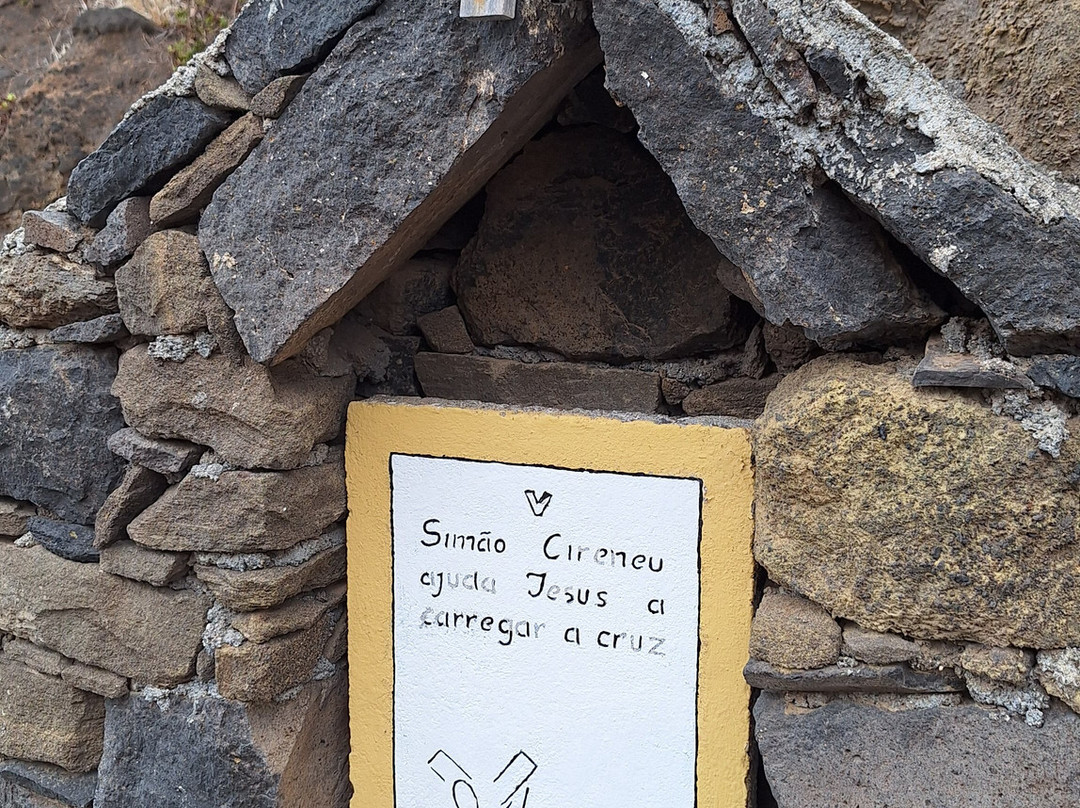 V
Simão Cireneu
ajuda Jesus a
carregar a cruz